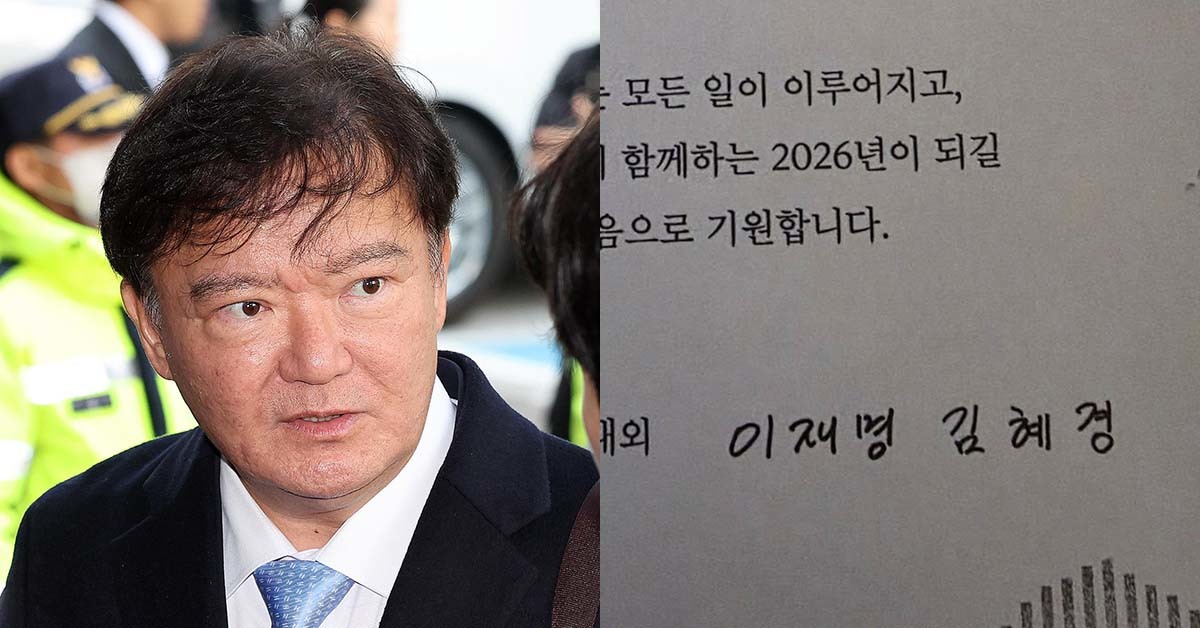 모든 일이 이루어지고,
함께하는 2026년이 되길
음으로 기원합니다.
내외 이재명 김혜경